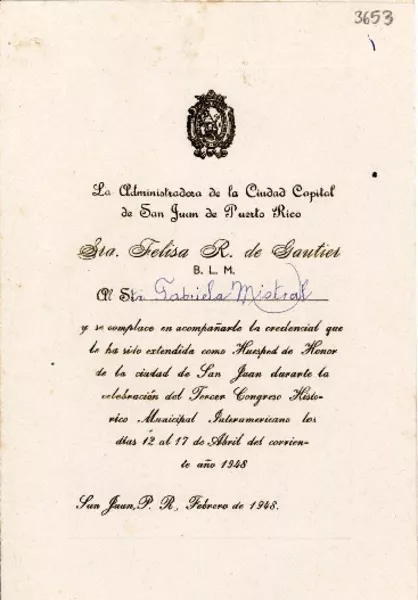 3653
La Administradora de la Ciudad Capital
de San Juan de Puerto Rico
Sra. Felisa R. de Gautier
B. L. M.
Al Sr. Gabriela Mistral
y se complace en acompañarle la credencial que
le ha sido extendida como Huesped de Honor
de la ciudad de San Juan durante la
celebración del Tercer Congreso Histo-
rico Municipal Interamericano los
dias 12 al 17 de Abril del corrien-
te año 1948
San Juan, P. R., Febrero de 1948.